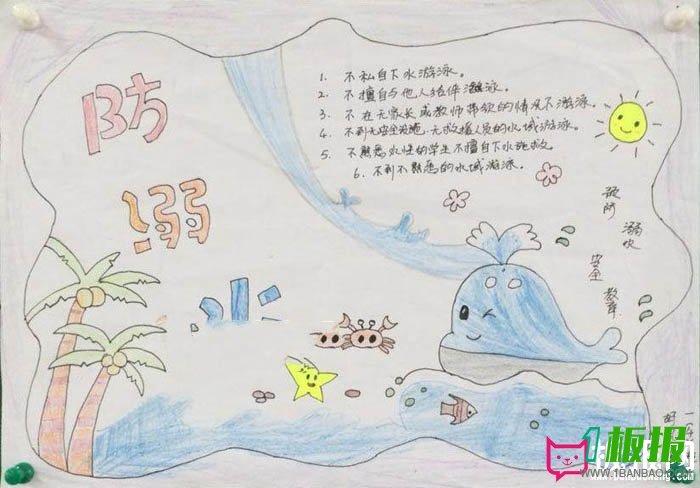 防
溺
水
1. 不私自下水游泳。
2. 不擅自与他人结伴游泳。
3. 不在无家长或教师带领的情况下游泳。
4. 不到无安全设施、无救援人员的水域游泳。
5. 不熟悉水性的学生不擅自下水施救。
6. 不到不熟悉的水域游泳。
溺水
安全
教育
1板报
WWW.1BANBAO.COM